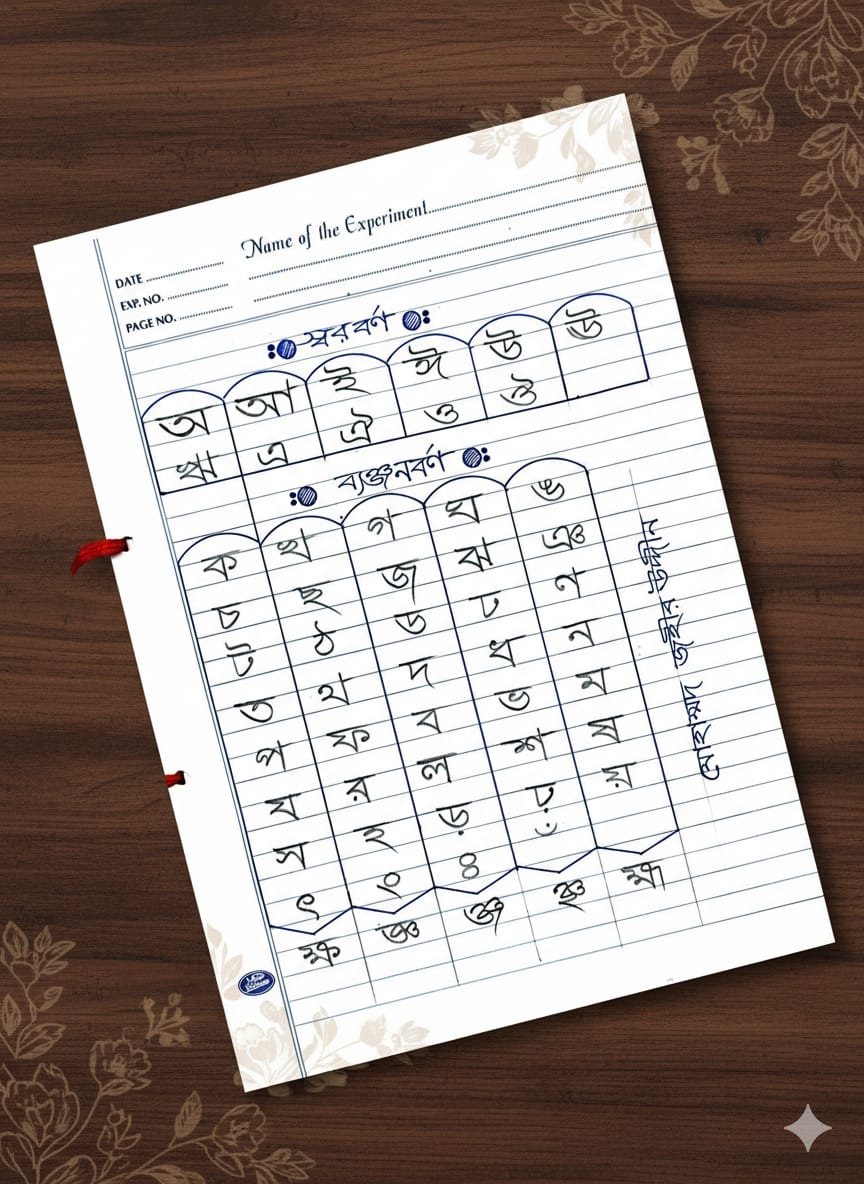 Name of the Experiment
DATE
EXP. NO.
PAGE NO.
স্বরবর্ণ
অ আ ই ঈ উ ঊ
ঋ এ ঐ ও ঔ
ব্যঞ্জনবর্ণ
ক খ গ ঘ ঙ
চ ছ জ ঝ ঞ
ট ঠ ড ঢ ণ
ত থ দ ধ ন
প ফ ব ভ ম
য র ল শ ষ
স হ ড় ঢ় য়
ৎ ং ঃ ঁ
ক্ষ ঞ্জ হ্ম
মোহাম্মদ জহীর উদ্দীন